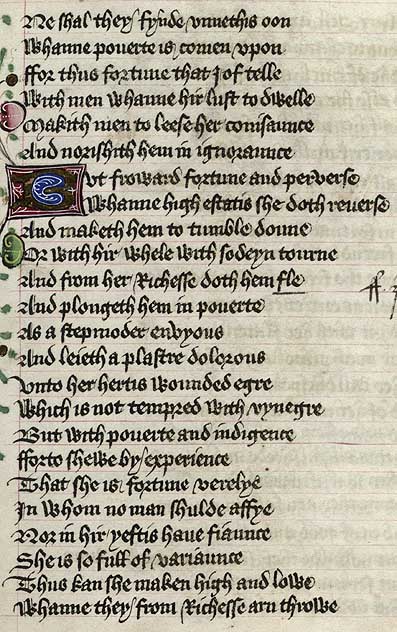 Ne shal they fynde vnnethis oon
Whanne pouerte is comen vpon
ffor thus fortune that I of telle
With men whanne hir lust to dwelle
Makith men to leese her conisaunce
And norishith hem in ignoraunce
Eut froward fortune and perverse
Whanne high estatis she doth reuerse
And maketh hem to tumble doune
Or with hir whele with sodeyn tourne
And from her Richesse doth hem fle
And plongeth hem in pouerte
As a stepmoder envyous
And leieth a plastre dolorous
Vnto her hertis wounded egre
Which is not tempred with vynegre
But with pouerte and indigence
fforto shewe by experience
That she is fortune verelye
In whom no man shulde affye
Nor in hir yeftis haue fiaunce
She is so full of variaunce
Thus kan she maken high and lowe
Whanne they from Richesse arn throwe